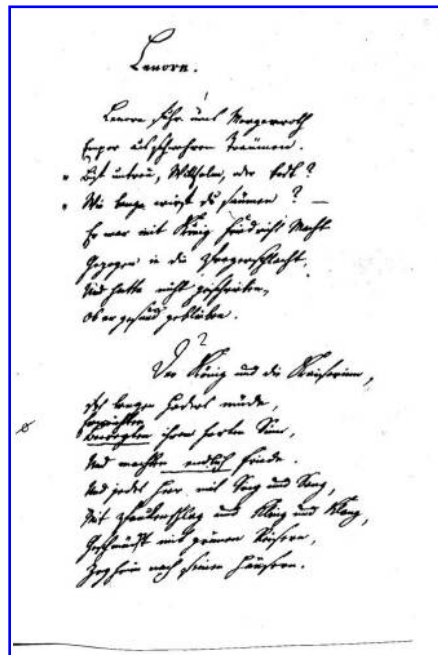 Lenore.
1
Lenore fuhr ums Morgenroth
Empor aus schwehren Träumen.
„ Bist untreu, Wilhelm, oder todt?
„ Wie lange wirst du säumen? —
Er war mit König Friedrichs Macht
Gezogen in die Pragerschlacht,
Und hatte nicht geschrieben,
Ob er gesund geblieben.
2
Der König und die Kaiserinn,
Des langen Haders müde,
Erweichten
ihren harten Sinn,
Und machten endlich Friede.
Und jedes Heer, mit Sing und Sang,
Mit Paukenschlag und Kling und Klang,
Geschmückt mit grünen Reisern,
Zog heim nach seinen Häusern.